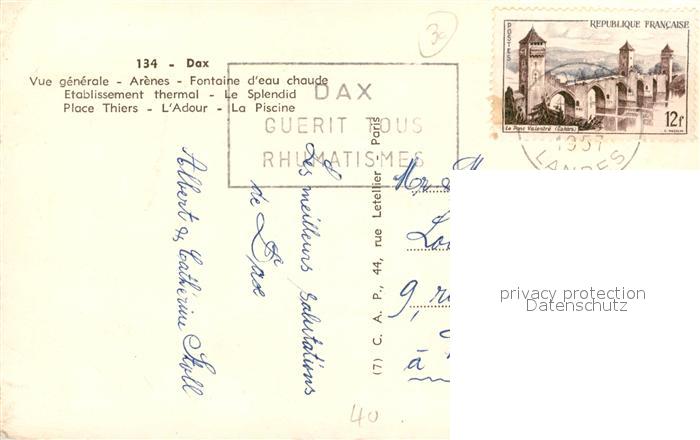 134 - Dax
Vue générale - Arènes - Fontaine d'eau chaude
Etablissement thermal - Le Splendid
Place Thiers - L'Adour - La Piscine
DAX
GUERIT TOUS
RHUMATISMES
30
REPUBLIQUE FRANÇAISE
POSTES
Le Pont Valentré (Cahors)
12f
1957
LANDES
Les meilleurs salutations
de Dax
Albert & Cathérine Stoll
(7) C. A. P., 44, rue Letellier - Paris
Mr &
9, ru
à
privacy protection
Datenschutz
40